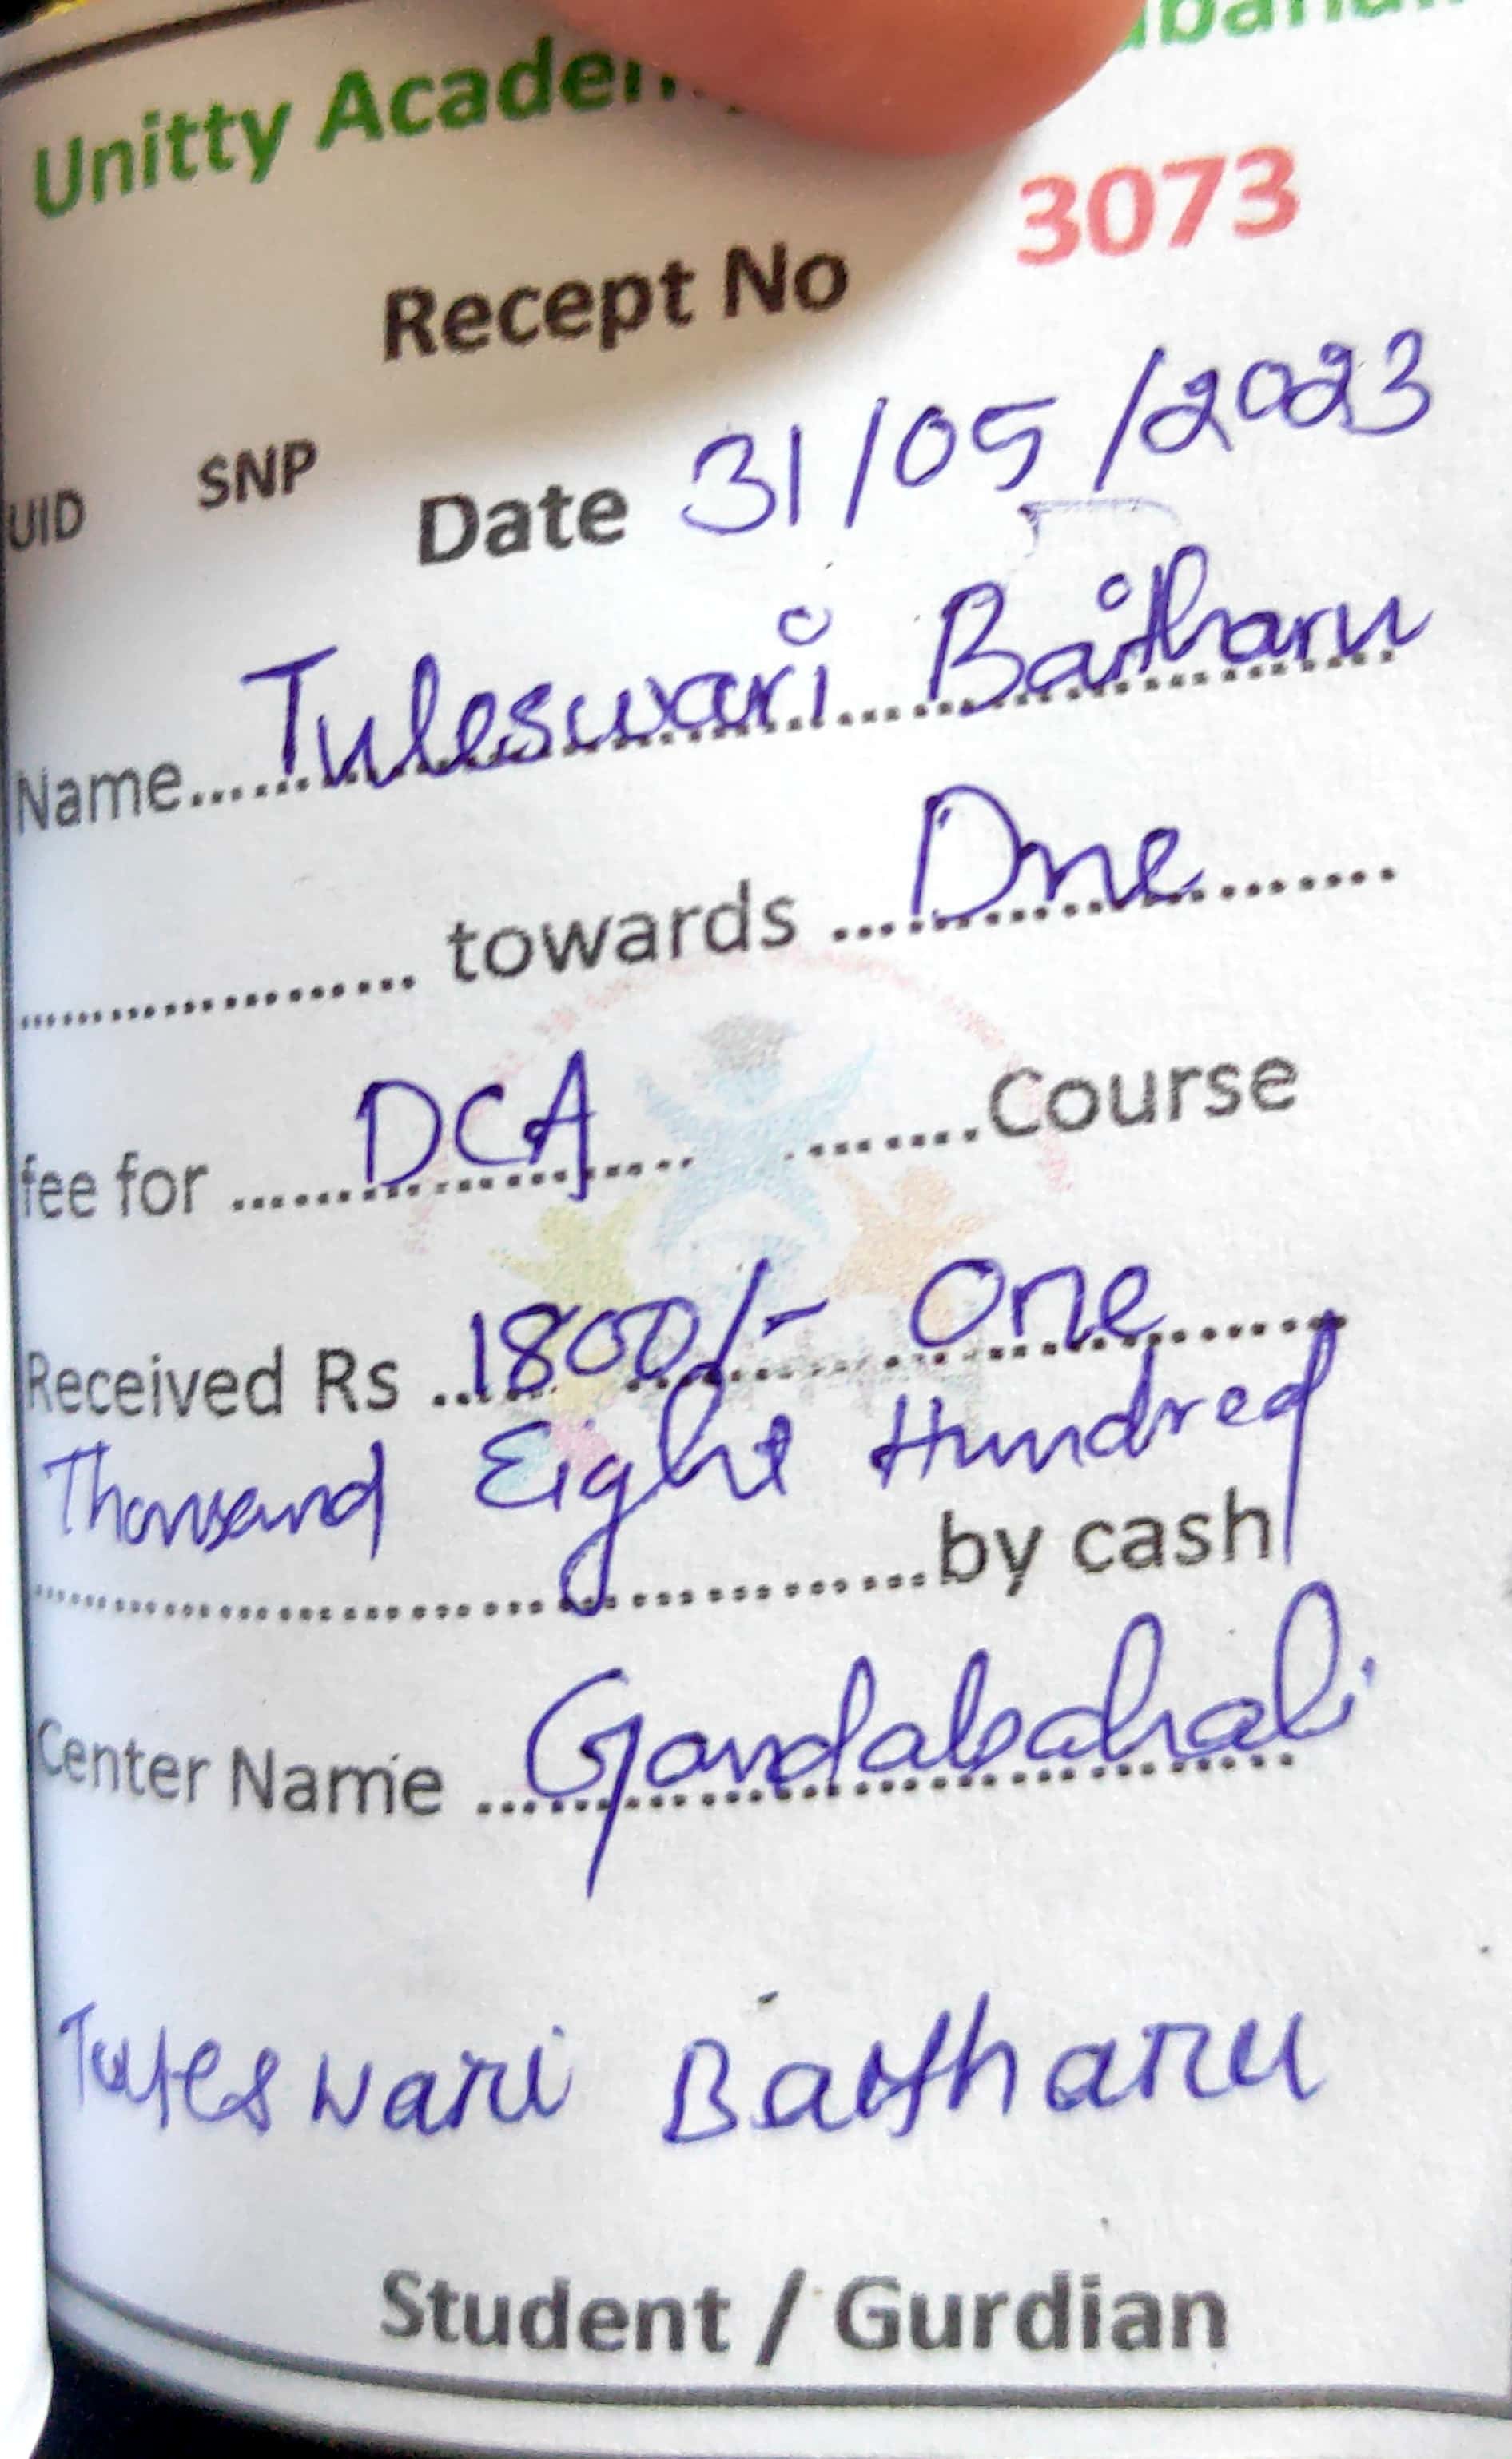 Unitty Academy
3073
Recept No
UID SNP Date 31/05/2023
Name Tuleswari Baitharu
towards Due
fee for DCA Course
Received Rs 1800/- One
Thousand Eight Hundred
by cash
Center Name Gandabahali
Tuleswari Baitharu
Student / Gurdian